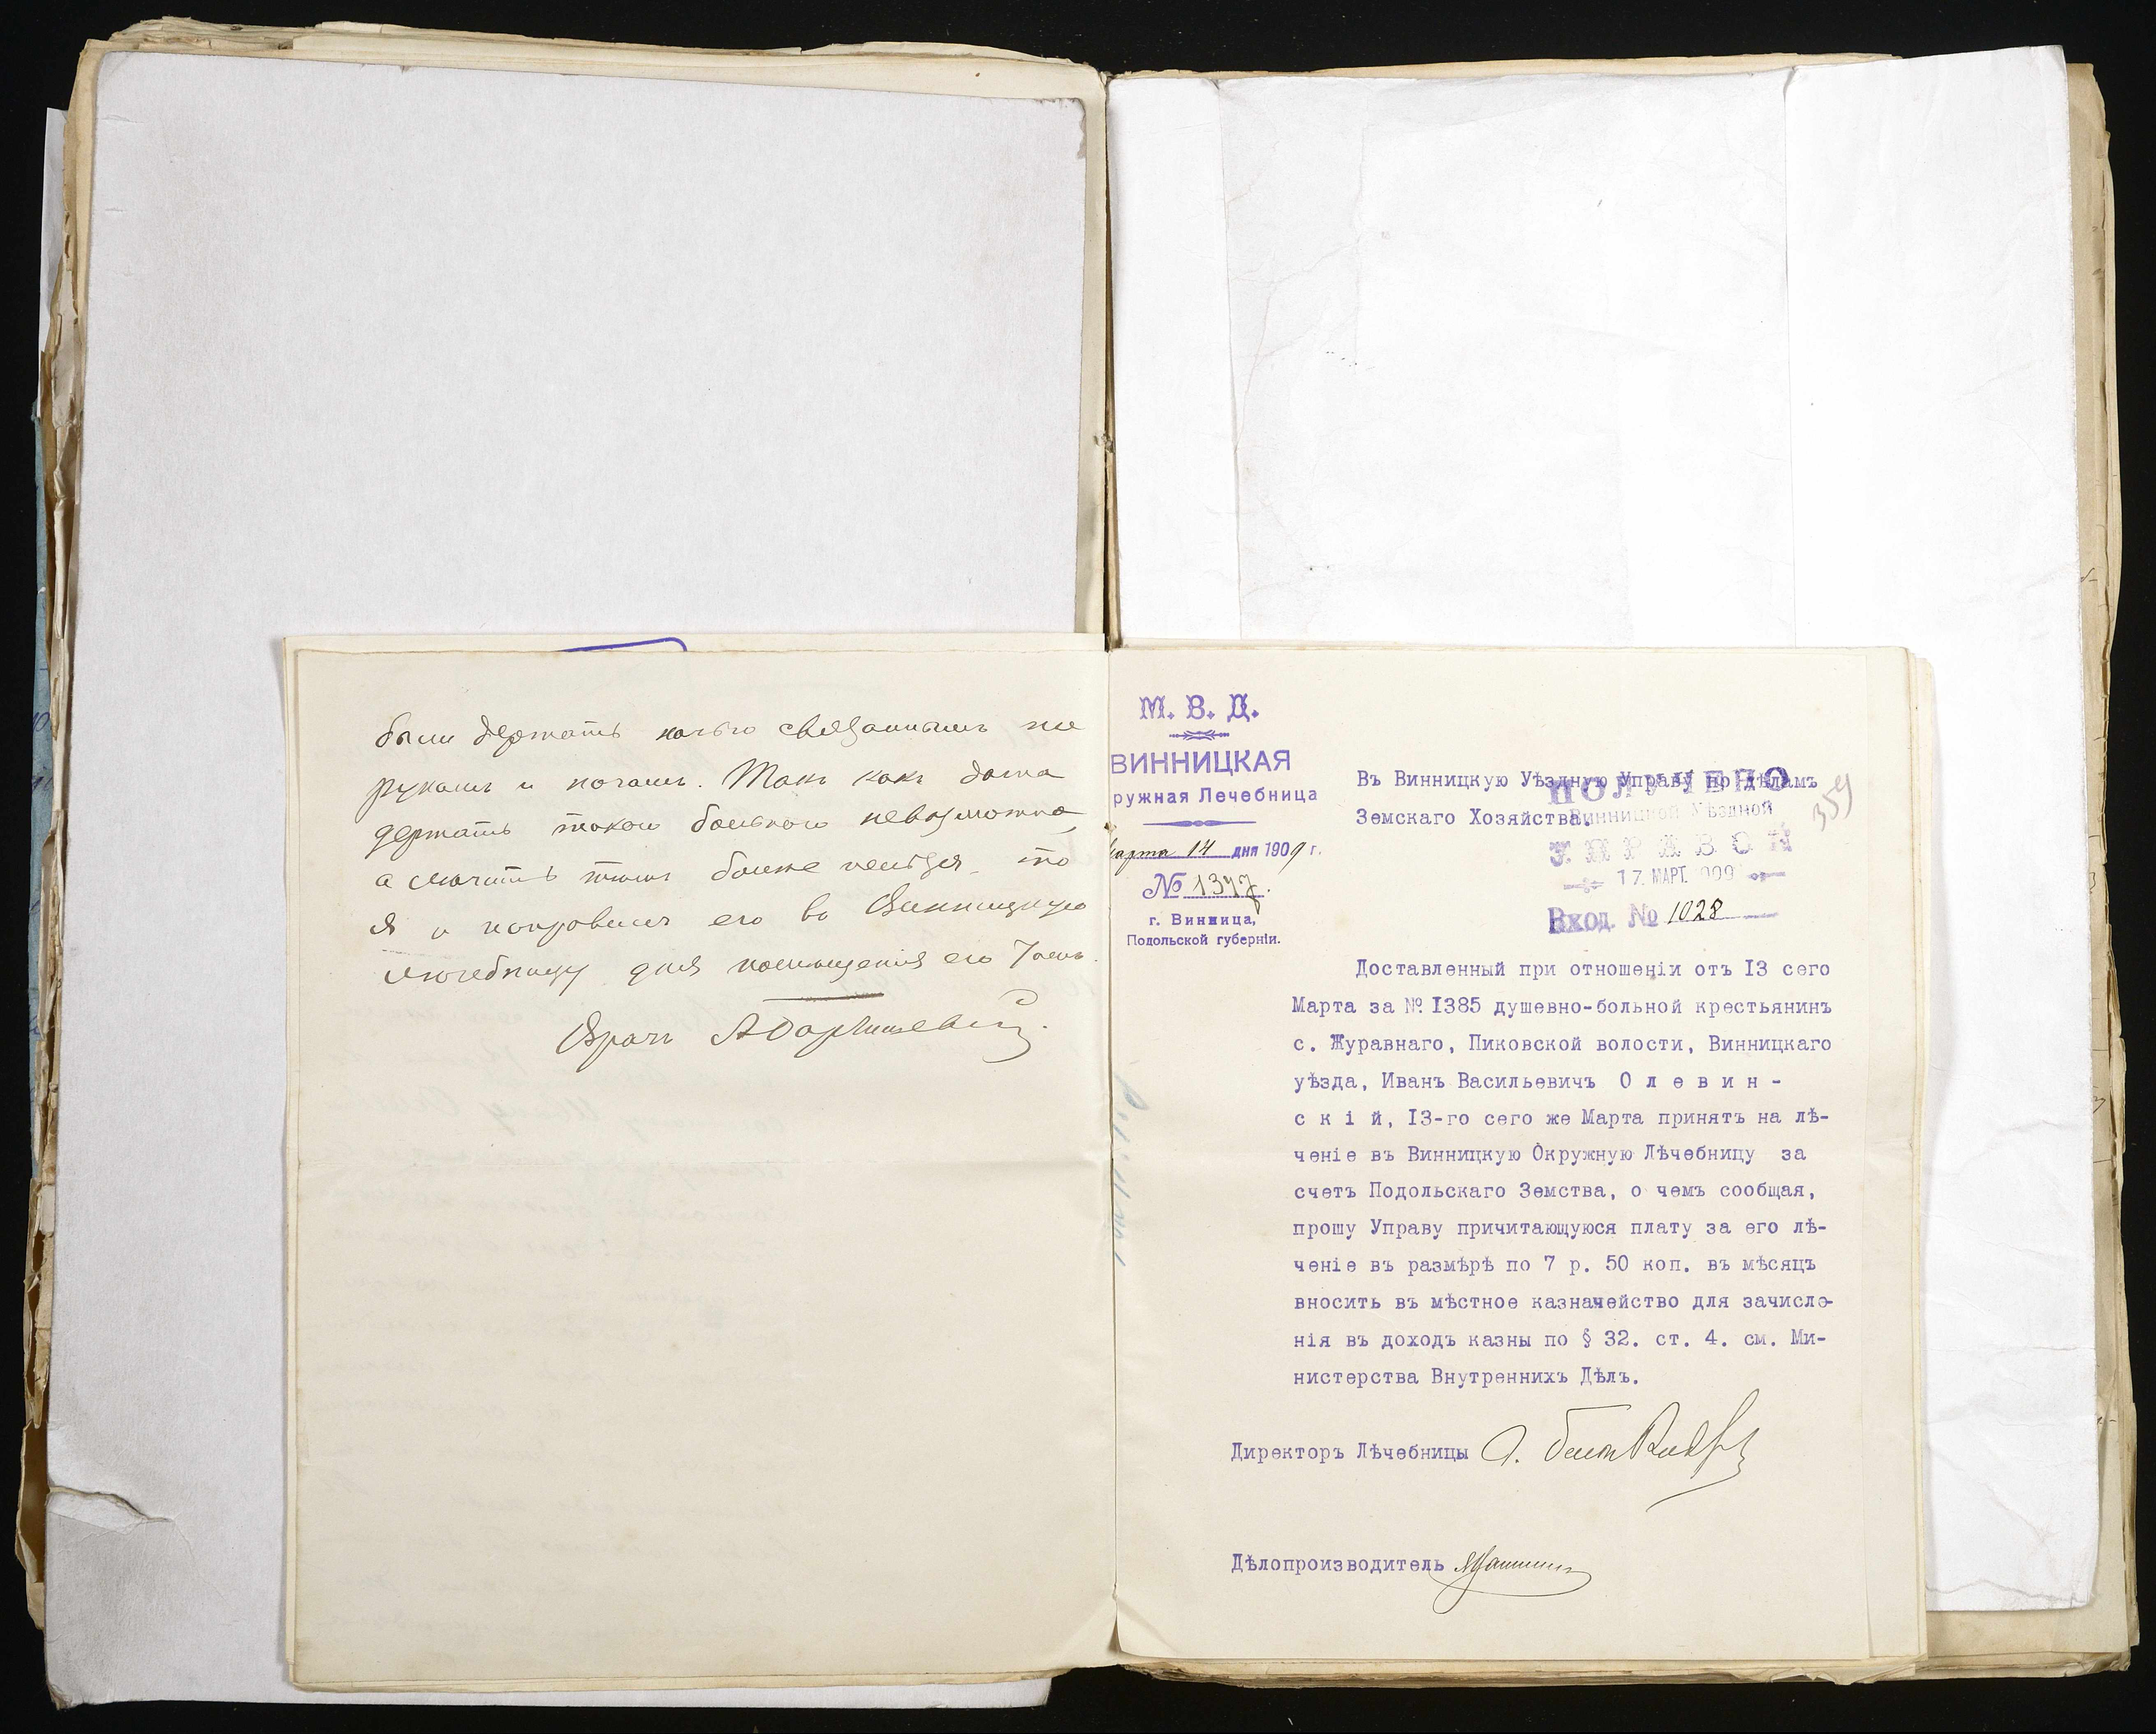 были держать ночью связаннымъ по
рукамъ и ногамъ. Такъ какъ дома
держать такого больного невозможно,
а лѣчить тѣмъ болѣе нельзя, то
я и направилъ его въ Винницкую
лѣчебницу для помѣщенія его тамъ.
Врачъ
М. В. Д.
ВИННИЦКАЯ
ружная Лечебница
арта 14 дня 1909 г.
№ 1377.
г. Винница,
Подольской губерніи.
Въ Винницкую Уѣздную Управу по дѣламъ
Земскаго Хозяйства.
ПОЛУЧЕНО
Винницкой Уѣздной
УПРАВОЙ
17. МАРТ. 909
Вход. № 1028
359
Доставленный при отношеніи отъ 13 сего
Марта за № 1385 душевно-больной крестьянинъ
с. Журавнаго, Пиковской волости, Винницкаго
уѣзда, Иванъ Васильевичъ О л е в и н -
с к і й, 13-го сего же Марта принятъ на лѣ-
ченіе въ Винницкую Окружную Лѣчебницу за
счетъ Подольскаго Земства, о чемъ сообщая,
прошу Управу причитающуюся плату за его лѣ-
ченіе въ размѣрѣ по 7 р. 50 коп. въ мѣсяцъ
вносить въ мѣстное казначейство для зачисле-
нія въ доходъ казны по § 32. ст. 4. см. Ми-
нистерства Внутреннихъ Дѣлъ.
Директоръ Лѣчебницы
Дѣлопроизводитель